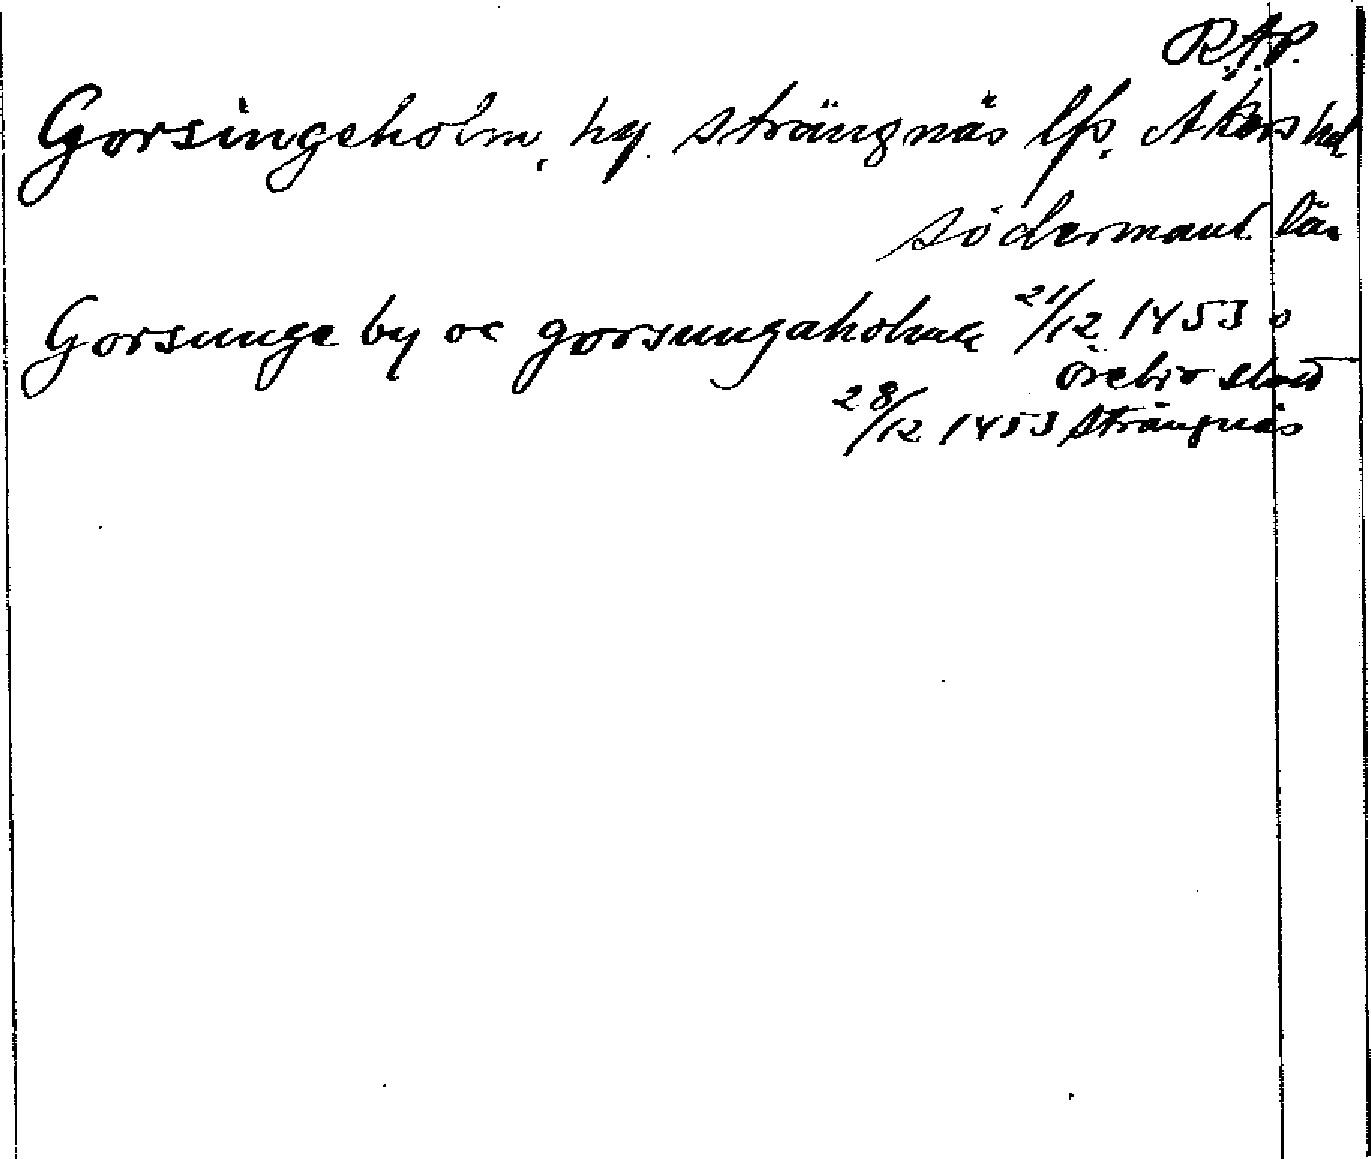 R.A.P.
Gorsingeholm, hg. Strängnäs lfs. Åkers hd
Södermanl. län
Gorsunge by oc gorsungaholma 21/12 1453 o
Örebro slott
28/12 1453 Strängnäs